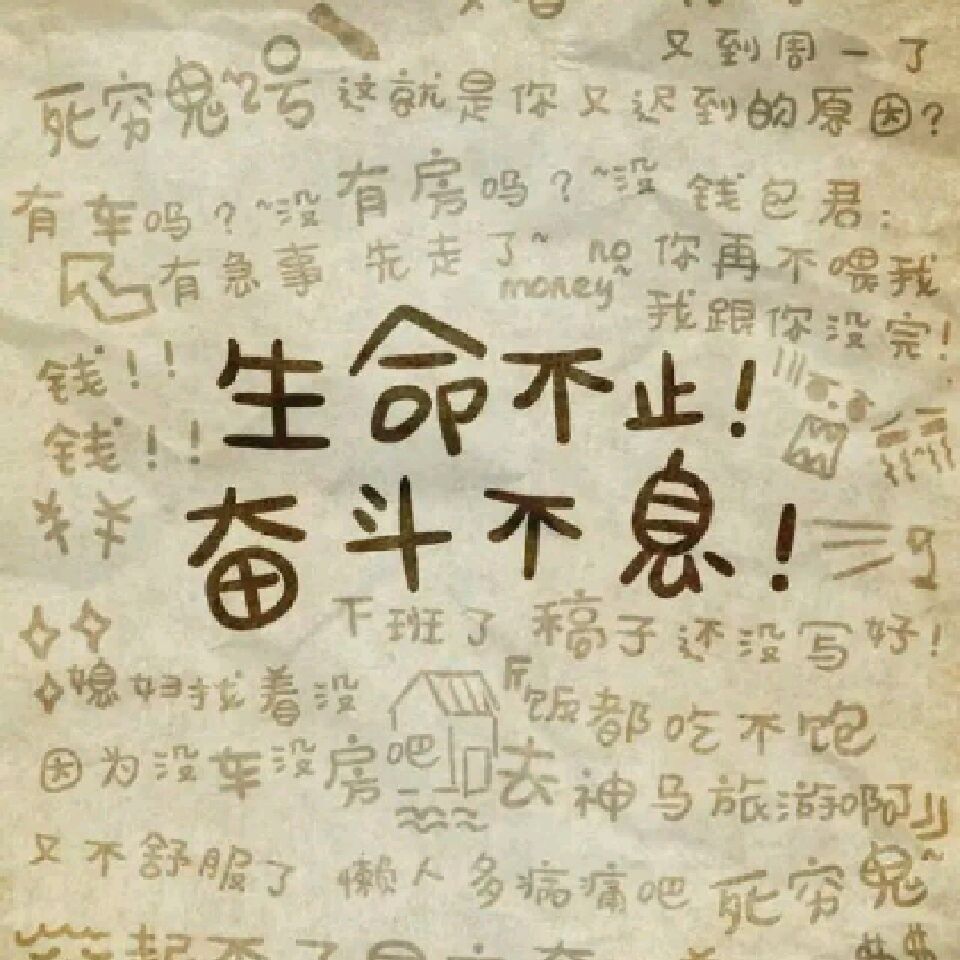 又到周一了
死穷鬼~2号 这就是你又迟到的原因?
有车吗?~没有房吗?~没 钱包君:
有急事 先走了~ no money~ 你再不喂我
我跟你没完!
钱!!
生命不止!
钱!!
奋斗不息!
下班了 稿子还没写好!
媳妇找着没
饭都吃不饱
因为没车没房吧
去神马旅游啊
又不舒服了 懒人多病痛吧 死穷鬼~